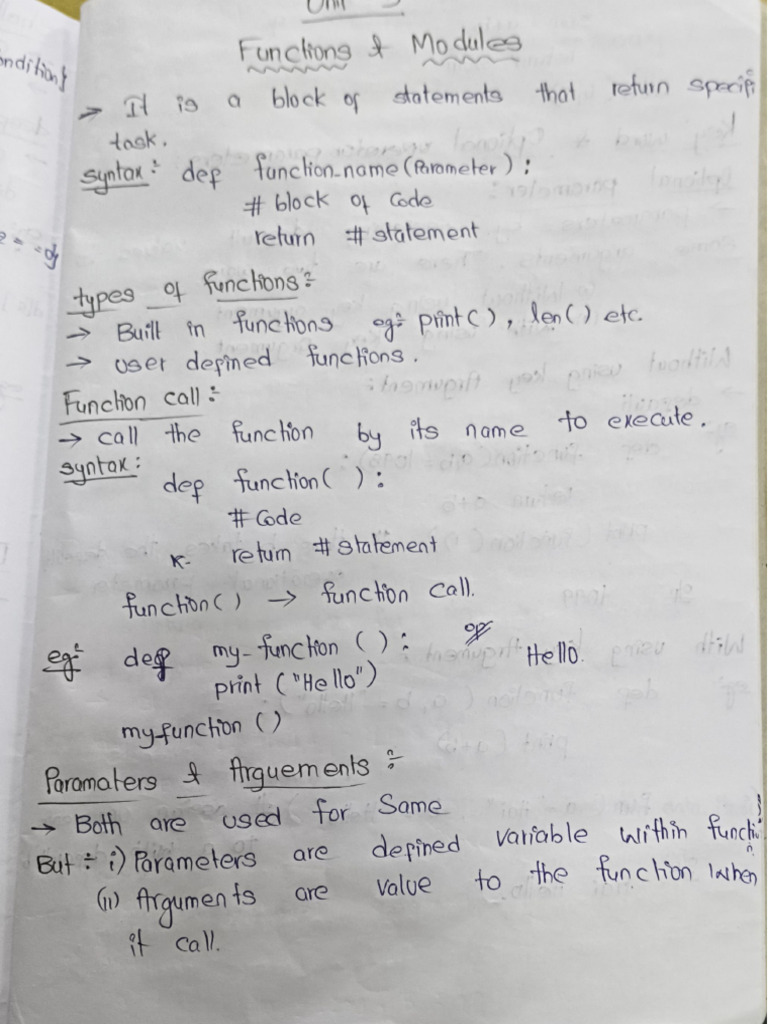 Functions & Modules
→ It is a block of statements that return specifi
task.
syntax:- def function_name(Parameter):
# block of Code
return #statement
types of functions:-
→ Built in functions eg:- print(), len() etc.
→ user defined functions.
Function call:-
→ call the function by its name to execute.
syntax:
def function():
# Code
return #statement
function() → function call.
eg:- def my_function():
o/p
Hello.
print ("Hello")
my_function()
Paramaters & Arguements:-
→ Both are used for Same
But:- i) Parameters are defined variable within functi
on
(ii) Arguments are value to the function when
it call.